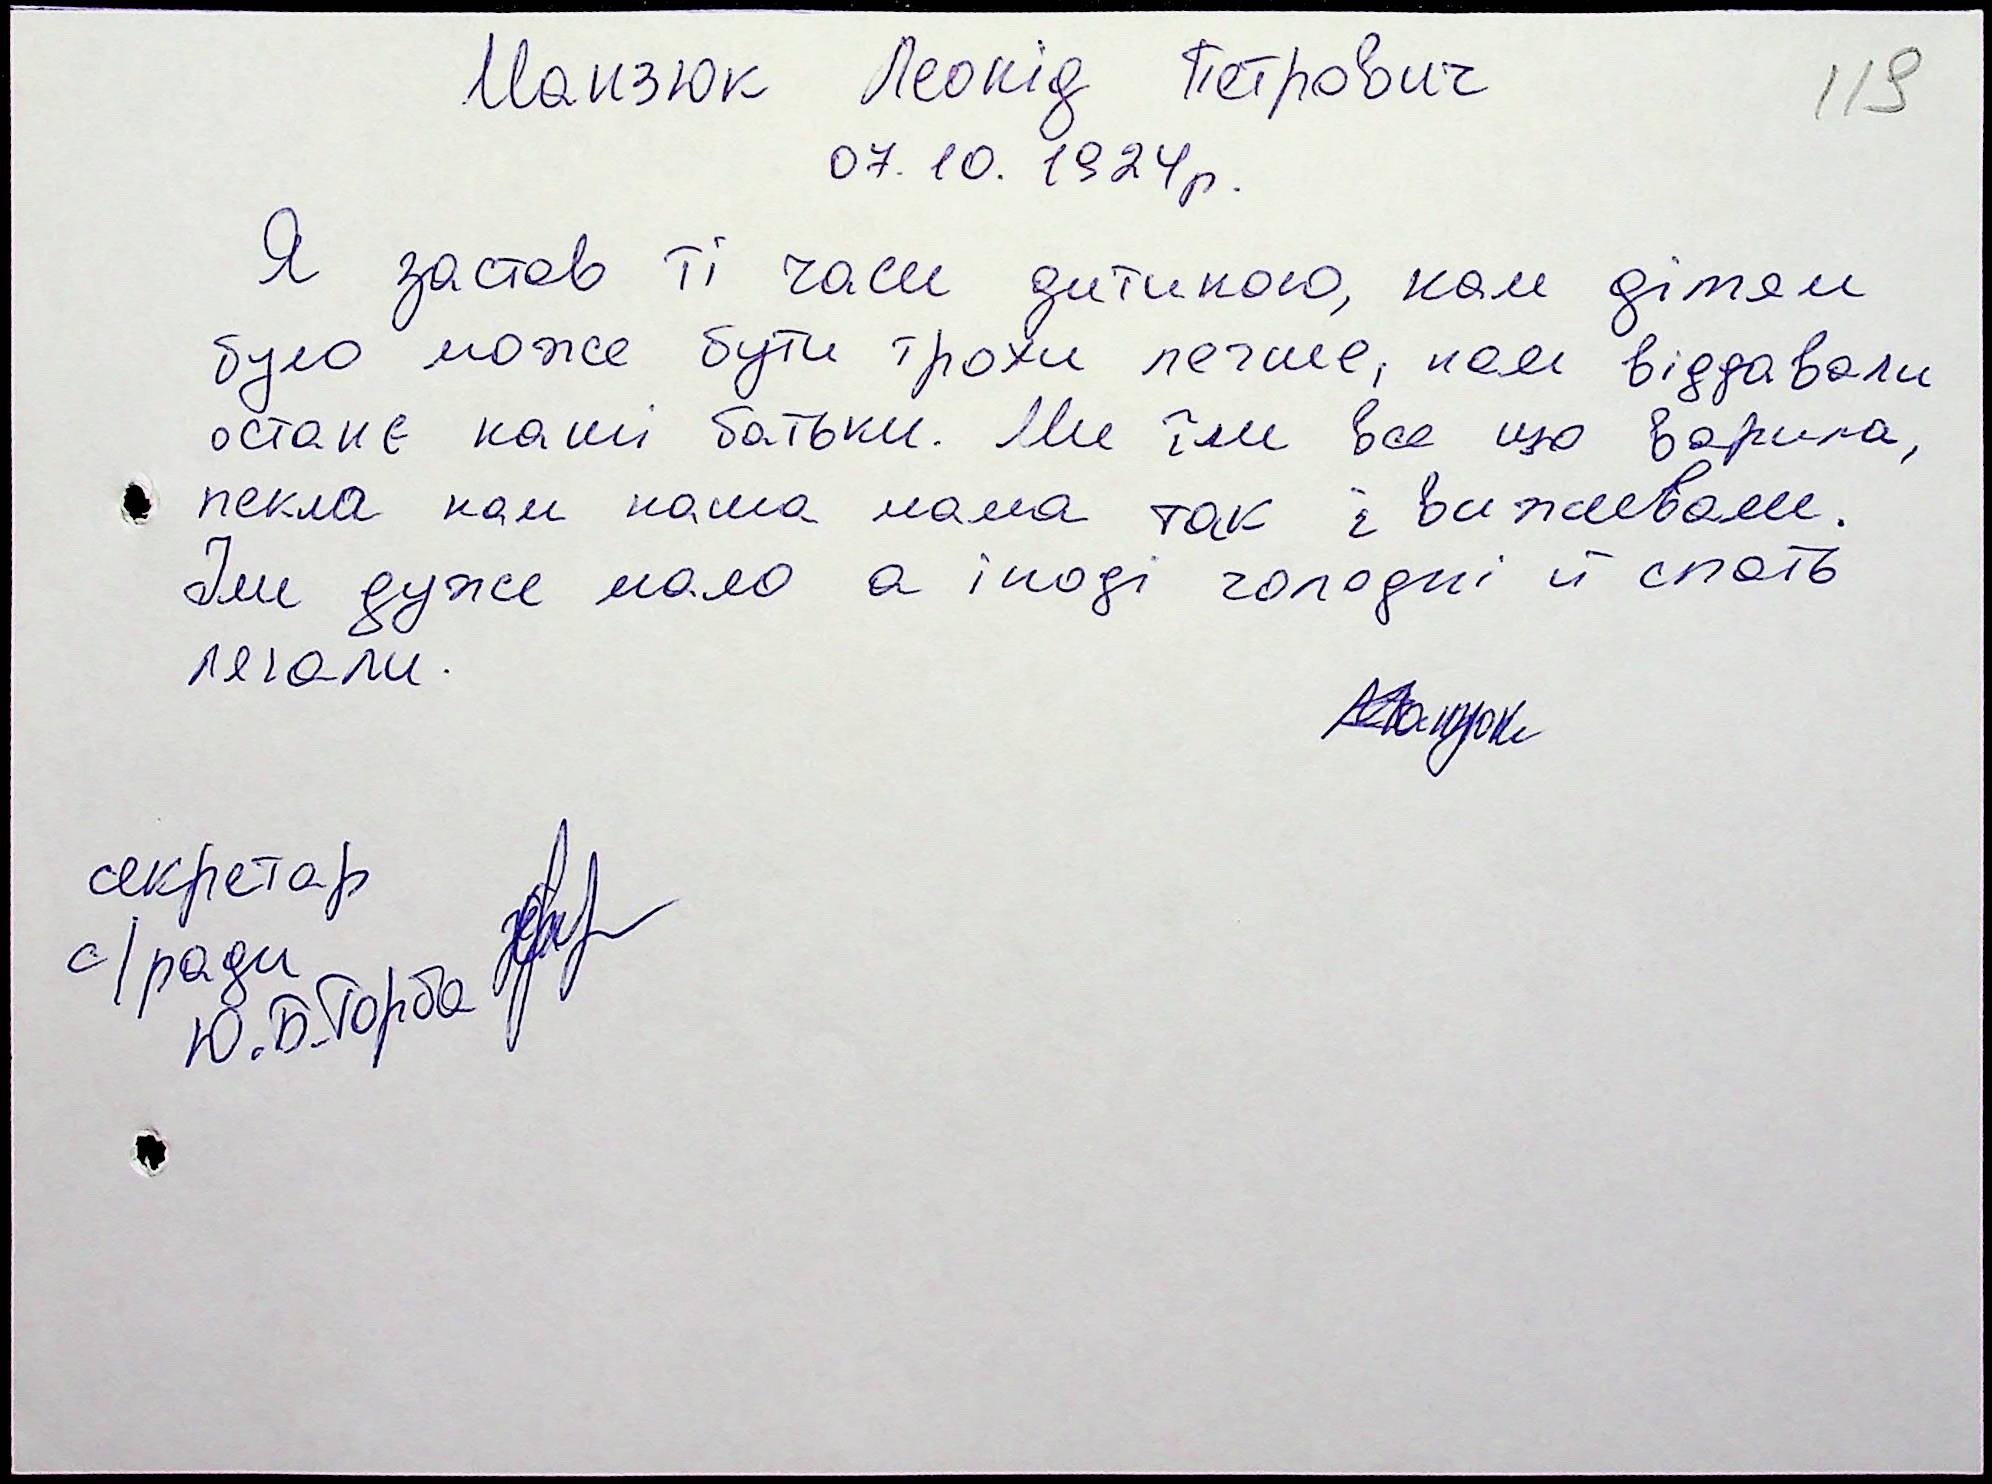 119
Манзюк Леонід Петрович
07.10.1924р.
Я застав ті часи дитиною, нам дітям
було може бути трохи легше, нам віддавали
останє наші батьки. Ми їли все що варила,
пекла нам наша мама так і виживали.
Їли дуже мало а іноді голодні й спать
лягали.
секретар
с/ради
Ю.Б.Горба